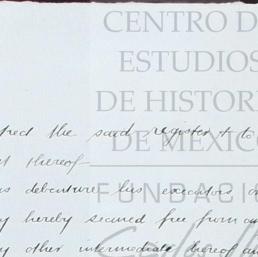 CENTRO D
ESTUDIOS
DE HISTOR
DE MÉXICO
FUNDACI
the said register
thereof
debenture his executors or
hereby secured free from
other intermediate thereof